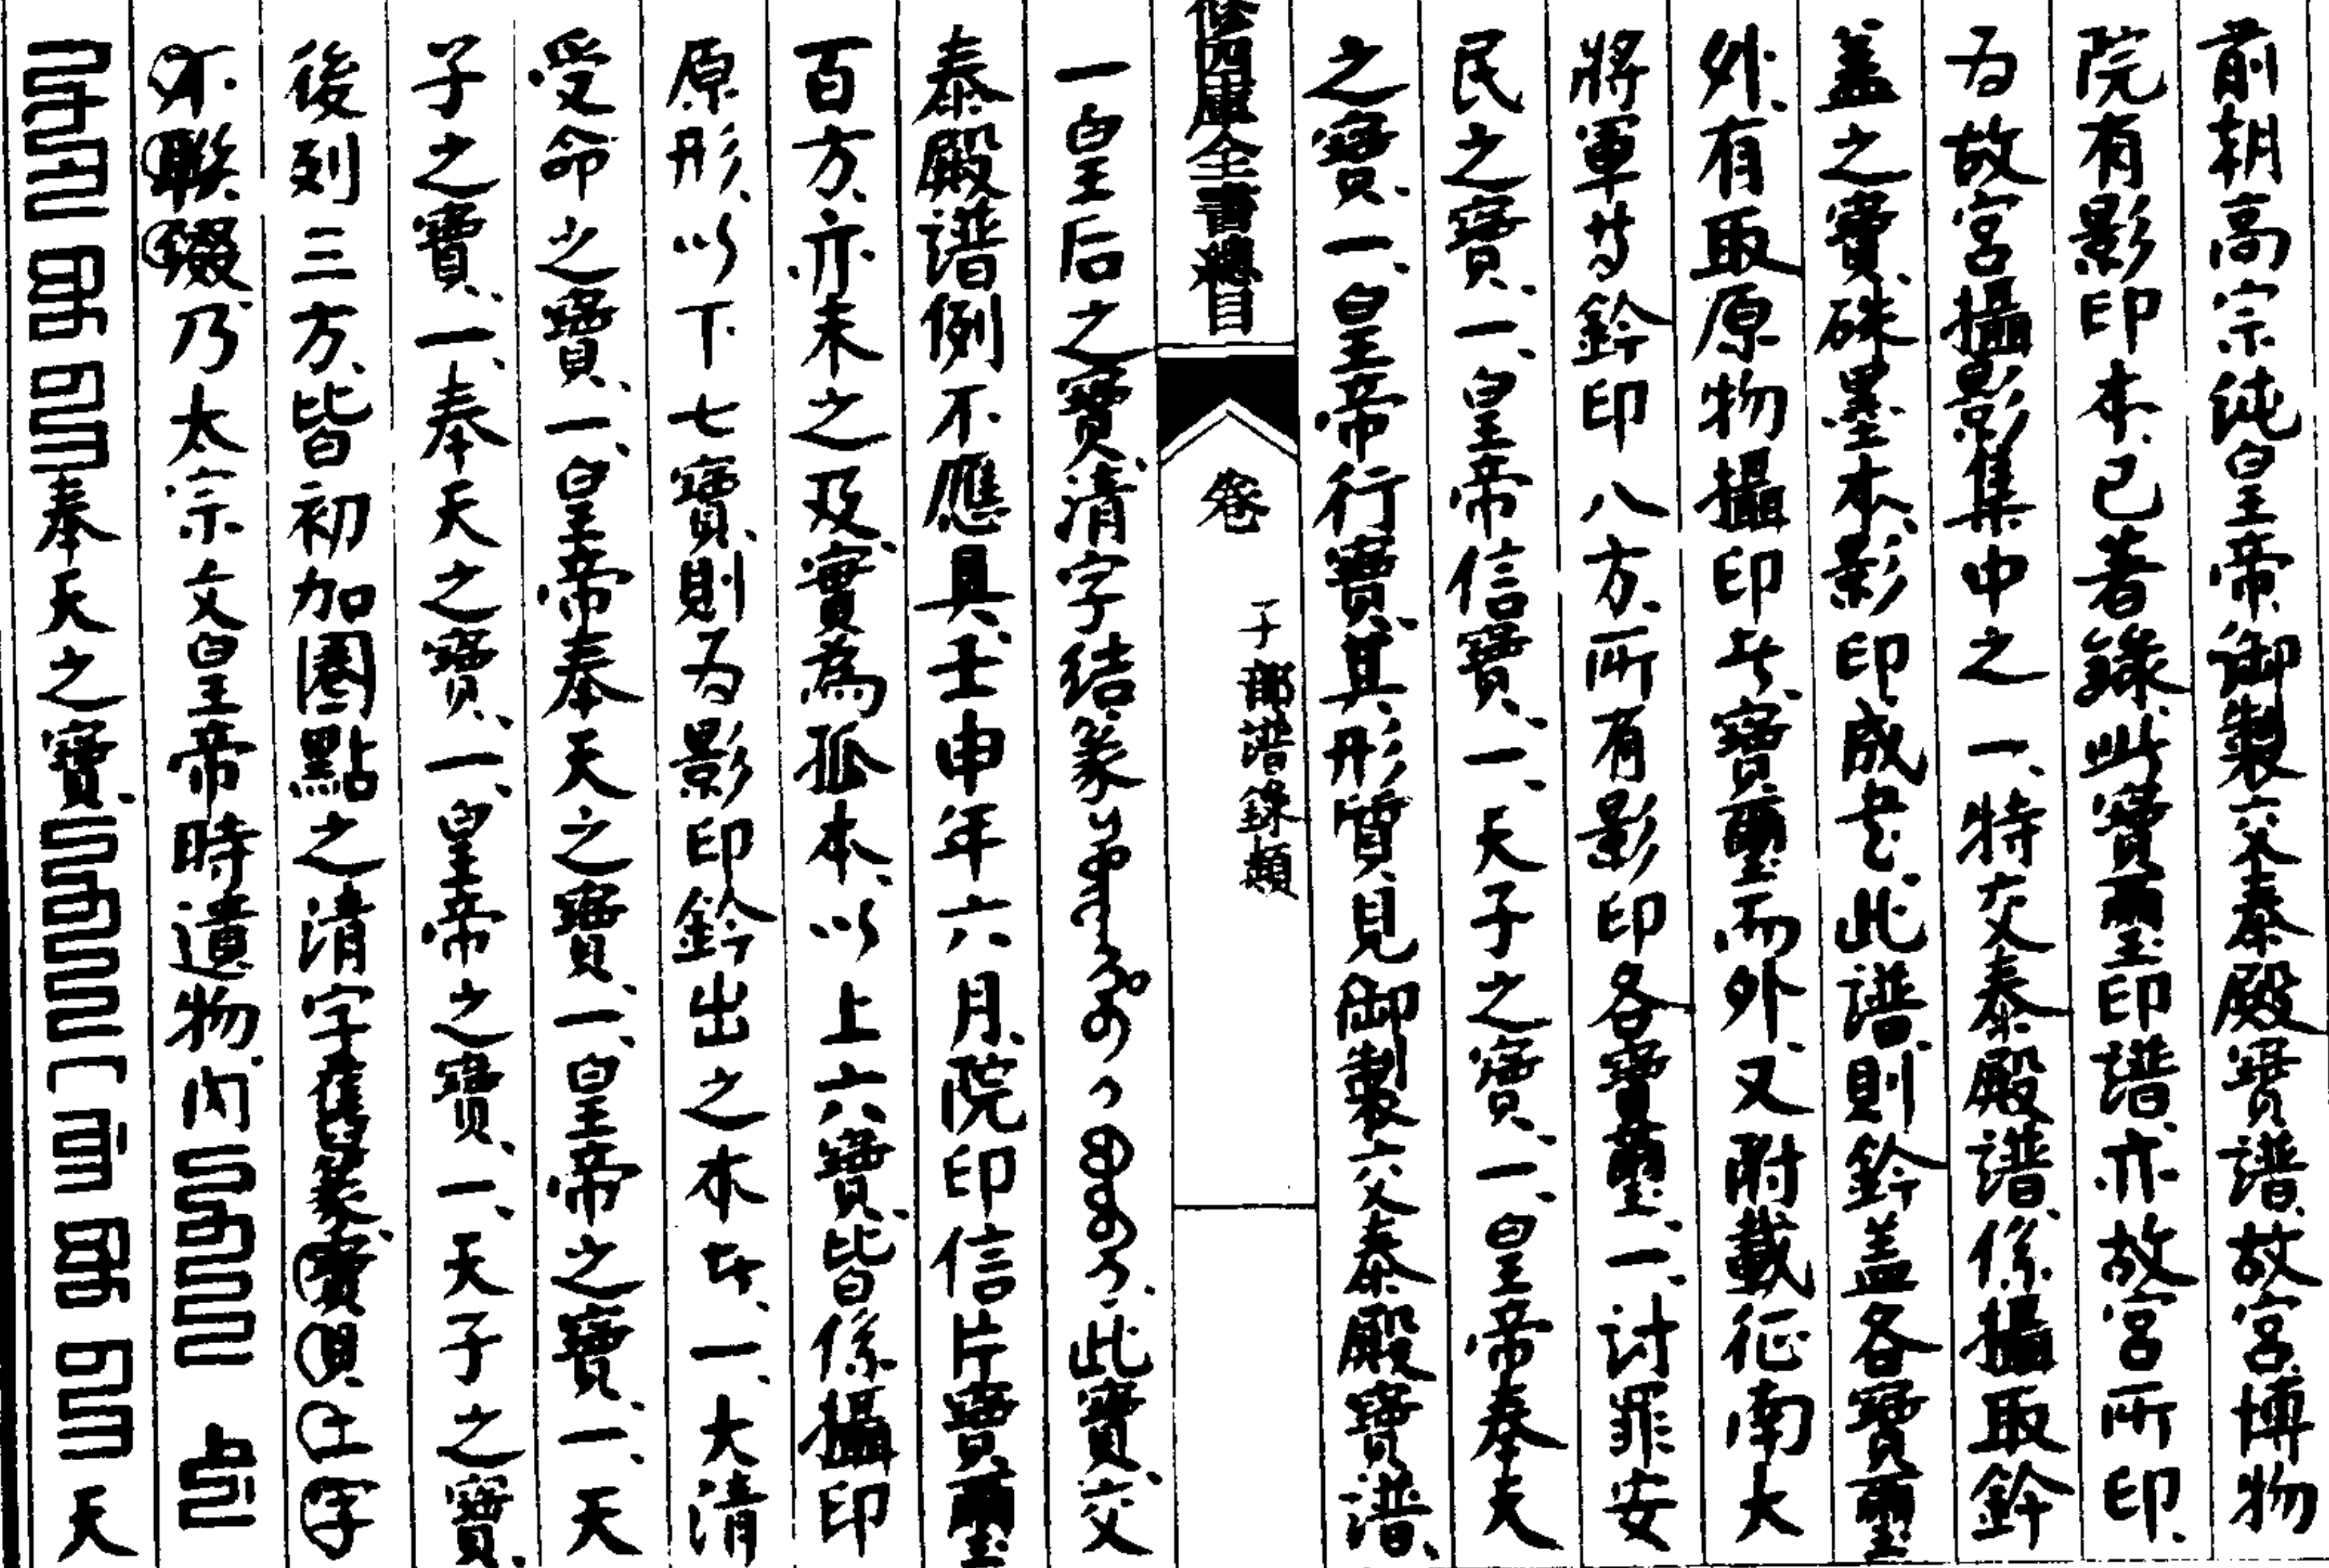 前朝高宗純皇帝御製交泰殿寶譜故宮博物
院有影印本已著錄此寶璽印譜亦故宮所印
为故宮攝影集中之一特交泰殿譜係攝取鈐
盖之寶硃墨本影印成書此譜則鈐盖各寶璽
外有取原物攝印者寶璽而外又附載征南大
將軍等鈐印八方所有影印各寶璽一討罪安
民之寶一皇帝信寶一天子之寶一皇帝奉天
之寶一皇帝行寶其形質見御製交泰殿寶譜
修四庫全書總目 卷 子部譜錄類
一皇后之寶清字结篆 此寶交
泰殿譜例不應具壬申年六月院印信片寶璽
百方亦未之及實為孤本以上六寶皆係攝印
原形以下七寶則为影印鈐出之本者一大清
受命之寶一皇帝奉天之寶一皇帝之寶一天
子之寶一奉天之寶一皇帝之寶一天子之寶
後列三方皆初加圈點之清字舊篆
不聯綴乃太宗文皇帝時遺物內
奉天之寶 天